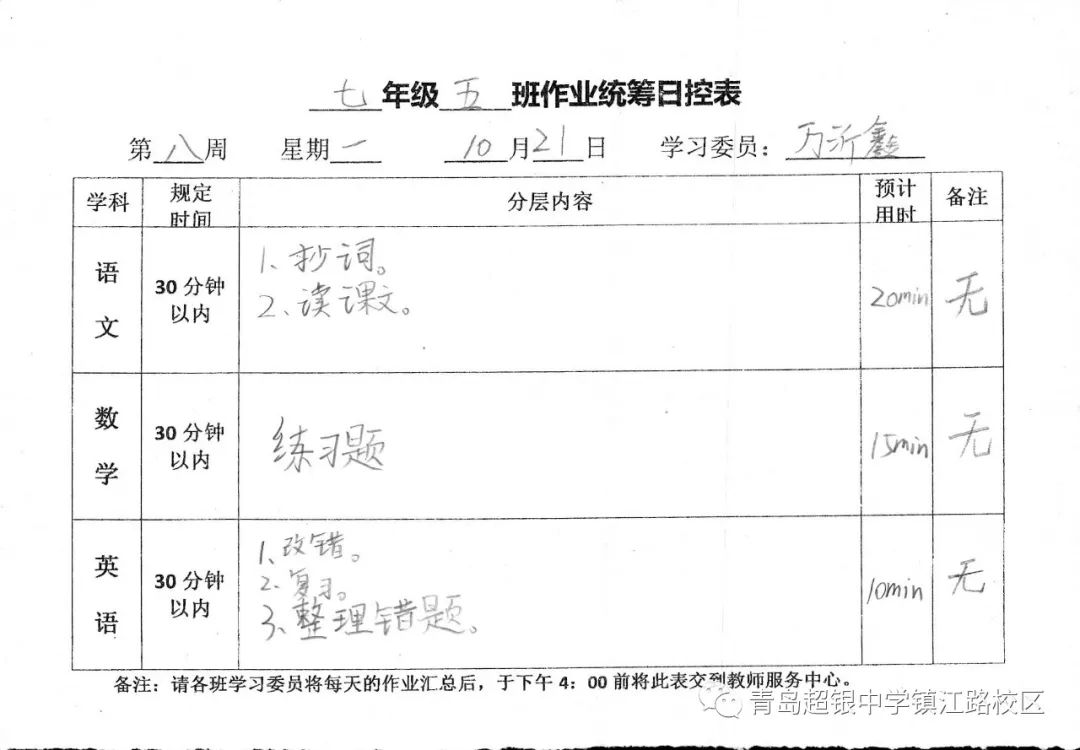 七年级五班作业统筹日控表
第八周 星期一 10月21日 学习委员：万沂鑫
学科 规定时间 分层内容 预计用时 备注
语文 30分钟以内 1、抄词。 20min 无
2、读课文。
数学 30分钟以内 练习题 15min 无
英语 30分钟以内 1、改错。 10min 无
2、复习。
3、整理错题。
备注：请各班学习委员将每天的作业汇总后，于下午4：00前将此表交到教师服务中心。
青岛超银中学镇江路校区